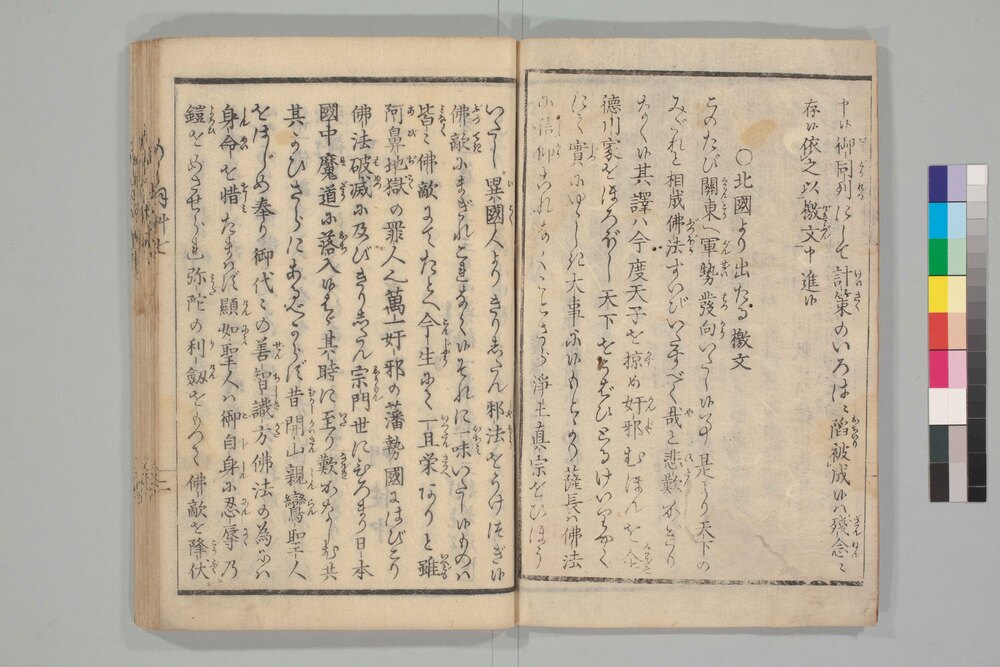 申候御同列にして計策のいろは〻滔被成候ハ残念〻
存候依之以檄文申進候
○北國より出たる檄文
このたび關東へ軍勢發向いたし候事是より天下の
みだれと相成佛法すいびいたすべく哉と悲歎かぎり
なく候其譯ハ今度天子を掠め奸邪むほんを企
德川家をほろぼし天下をうばひとるけいりやく
にて實にゆゝしき大事に候もとより薩長ハ佛法
に信仰これなくことさら淨土真宗をひほう
いたし異國人よりきりしたん邪法をうけつぎ候
佛敵にまぎれこれなく候それに一味いたし候ものハ
皆〻佛敵にてたとへ今生にて一旦栄ありと雖
阿鼻地獄の罪人〻萬一奸邪の藩勢國にはびこり
佛法破滅に及びきりしたん宗門世にひろまり日本
國中魔道に落入候はゞ其時に至り歎かなしむ共
其かひさらにあるべからず昔開山親鸞聖人
をはじめ奉り御代〻の善智識方佛法の為にハ
身命を惜たまはず顯如聖人ハ御自身に忍辱乃
鎧をめさせられ弥陀の利劔をもつて佛敵を降伏